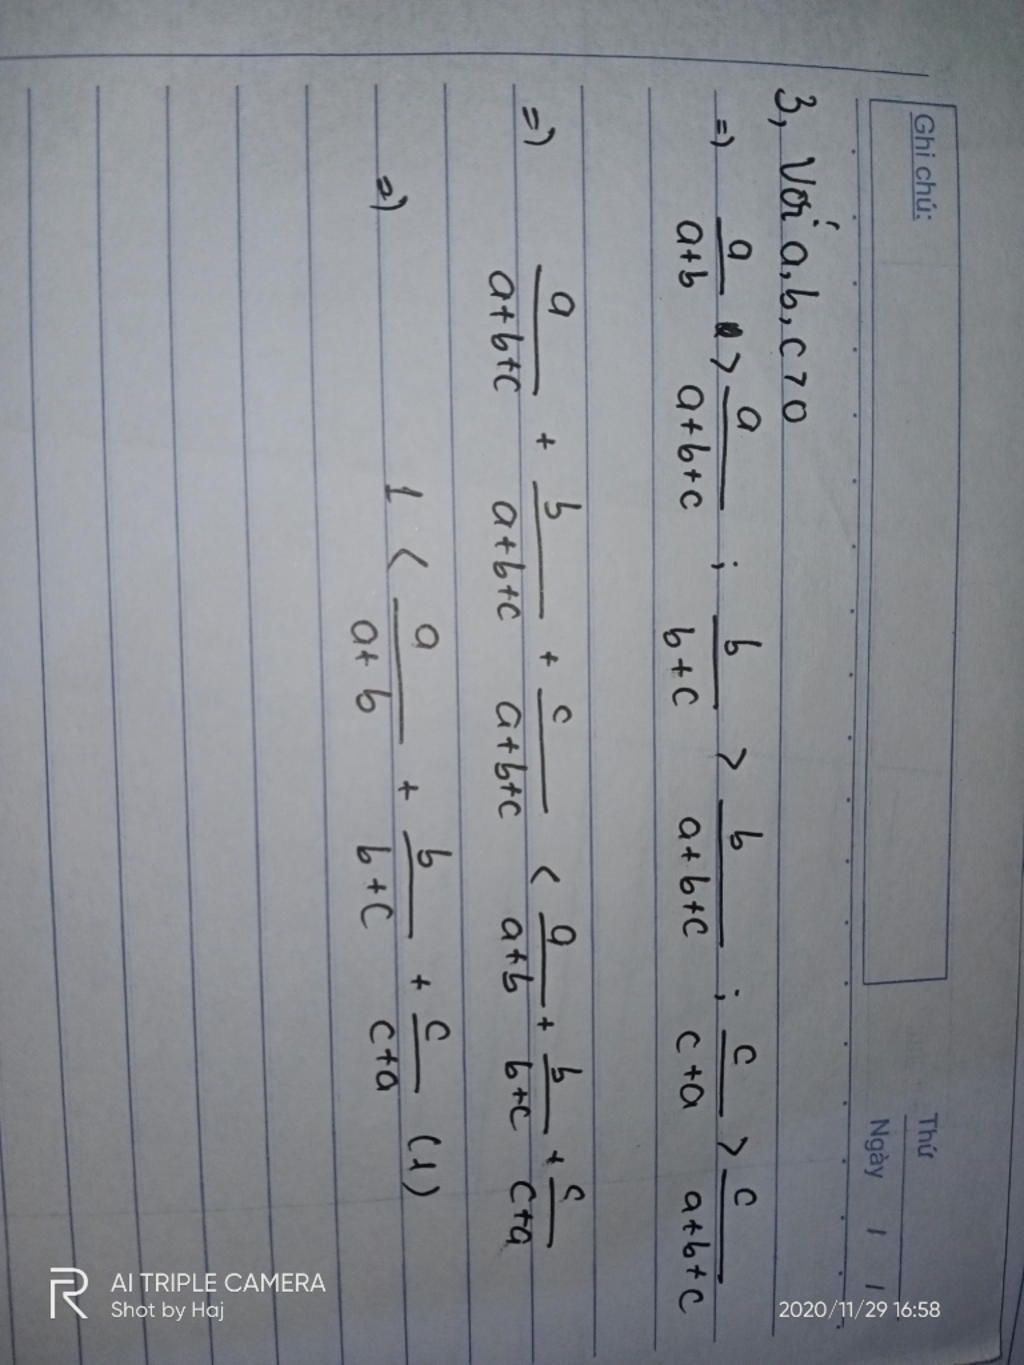 Ghi chú:
Thứ
Ngày / /
3, Với a, b, c > 0
=) a/(a+b) > a/(a+b+c) ; b/(b+c) > b/(a+b+c) ; c/(c+a) > c/(a+b+c)
=) a/(a+b+c) + b/(a+b+c) + c/(a+b+c) < a/(a+b) + b/(b+c) + c/(c+a)
=) 1 < a/(a+b) + b/(b+c) + c/(c+a) (1)
AI TRIPLE CAMERA
Shot by Haj
2020/11/29 16:58